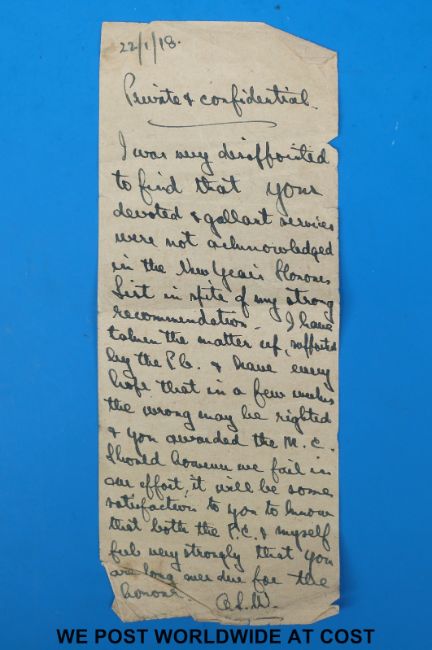 22/1/18.
Private & confidential.
I was very disappointed
to find that your
devoted & gallant services
were not acknowledged
in the New Year's Honours
List in spite of my strong
recommendation. I have
taken the matter up, supported
by the P.C. & have every
hope that in a few weeks
the wrong may be righted
& you awarded the M.C.
Should however we fail in
our effort, it will be some
satisfaction to you to know
that both the P.C. & myself
feel very strongly that you
are long over due for the
honour.
WE POST WORLDWIDE AT COST